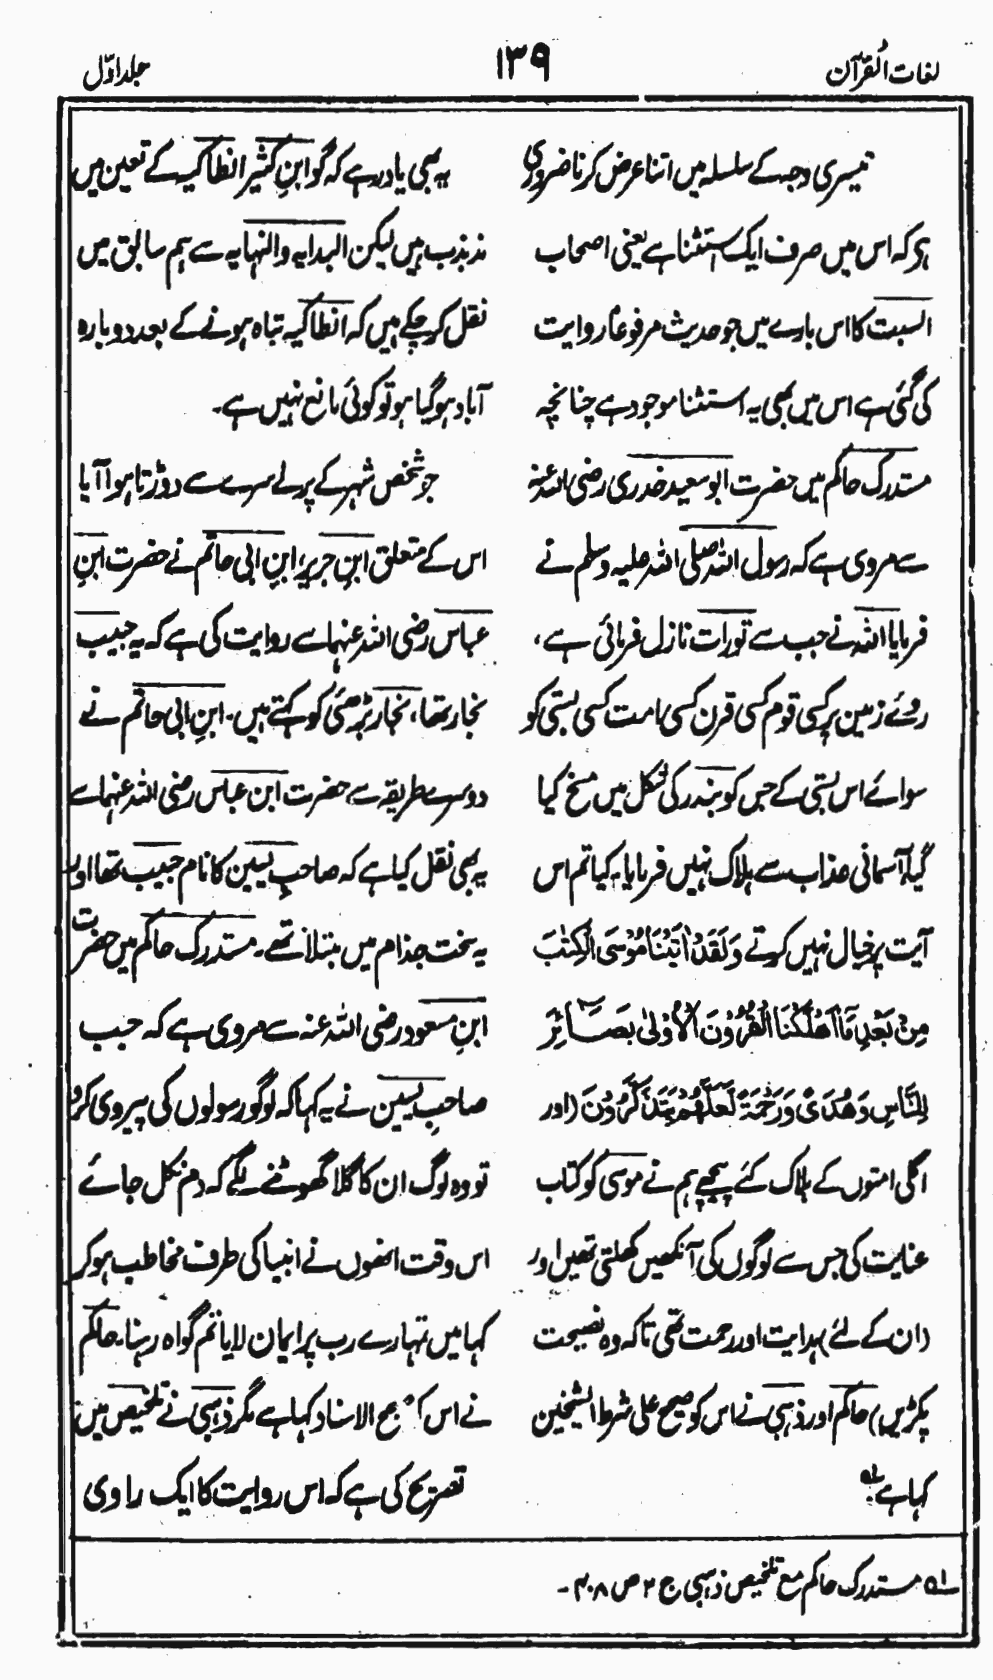 لغات القرآن
۱۳۹
جلد اوّل
تیسری وجہ کے سلسلہ میں اتنا عرض کرنا ضروری
ہے کہ اس میں صرف ایک استثنا ہے یعنی اصحاب
السبت کا اس بارے میں جو حدیث مرفوعًا روایت
کی گئی ہے اس میں بھی یہ استثنا موجود ہے چنانچہ
مستدرک حاکم میں حضرت ابو سعید خدری رضی اللہ عنہ
سے مروی ہے کہ رسول اللہ صلی اللہ علیہ وسلم نے
فرمایا اللہ نے جب سے تورات نازل فرمائی ہے،
روئے زمین پر کسی قوم کسی قرن کسی امت کسی بستی کو
سوائے اس بستی کے جس کو بندر کی شکل میں مسخ کیا
گیا، آسمانی عذاب سے ہلاک نہیں فرمایا۔ کیا تم اس
آیت پر خیال نہیں کرتے وَلَقَدْ اٰتَيْنَا مُوْسَى الْكِتٰبَ
مِنْ بَعْدِ مَآ اَهْلَكْنَا الْقُرُوْنَ الْاُوْلٰى بَصَآئِرَ
لِلنَّاسِ وَهُدًى وَّرَحْمَةً لَّعَلَّهُمْ يَتَذَكَّرُوْنَ (اور
اگلی امتوں کے ہلاک کئے پیچھے ہم نے موسی کو کتاب
عنایت کی جس سے لوگوں کی آنکھیں کھلتی تھیں اور
(ان کے لئے) ہدایت اور رحمت تھی تاکہ وہ نصیحت
پکڑیں) حاکم اور ذہبی نے اس کو صحیح علی شرط الشیخین
کہا ہے۔ لہ
یہ بھی یاد رہے کہ گو ابنِ کثیر انطاکیہ کے تعین میں
مذبذب ہیں لیکن البدایہ والنہایہ سے ہم سابق میں
نقل کر چکے ہیں کہ انطاکیہ تباہ ہونے کے بعد دوبارہ
آباد ہو گیا ہو تو کوئی مانع نہیں ہے۔
جو شخص شہر کے پرلے سرے سے دوڑتا ہوا آیا
اس کے متعلق ابنِ جریر، ابنِ ابی حاتم نے حضرت ابنِ
عباس رضی اللہ عنہما سے روایت کی ہے کہ یہ حبیب
نجار تھا، نجار بڑھئی کو کہتے ہیں۔ ابنِ ابی حاتم نے
دوسرے طریقہ سے حضرت ابن عباس رضی اللہ عنہما سے
یہ بھی نقل کیا ہے کہ صاحبِ یٰسین کا نام حبیب تھا اور
یہ سخت جذام میں مبتلا تھے۔ مستدرک حاکم میں حضرت
ابنِ مسعود رضی اللہ عنہ سے مروی ہے کہ جب
صاحبِ یٰسین نے یہ کہا کہ لوگو رسولوں کی پیروی کرو
تو وہ لوگ ان کا گلا گھونٹنے لگے کہ دم نکل جائے
اس وقت انھوں نے انبیا کی طرف مخاطب ہو کر
کہا میں تمہارے رب پر ایمان لایا تم گواہ رہنا۔ حاکم
نے اس کو صحیح الاسناد کہا ہے مگر ذہبی نے تلخیص میں
تصریح کی ہے کہ اس روایت کا ایک راوی
لہ مستدرک حاکم مع تلخیص ذہبی ج ۲ ص ۴۰۸ ۔